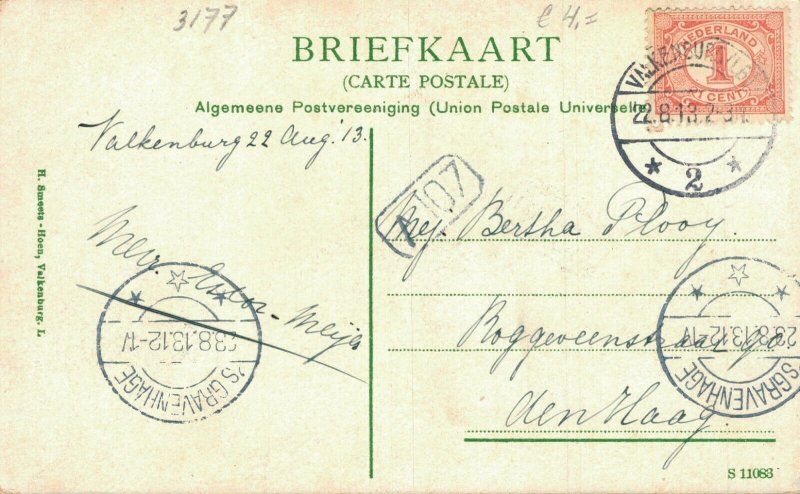 3177
£ 4,=
BRIEFKAART
(CARTE POSTALE)
Algemeene Postvereeniging (Union Postale Universelle)
NEDERLAND
1
CENT
VALKENBURG (LB
22.8.13.2-3
2
Valkenburg 22 Aug. 13.
A107
Mej. Bertha Plooy.
Roggeveenstraat 90
den Haag.
Mevr.
Meijer
23.8.13.12-1V
'S GRAVENHAGE
23.8.13.12-1V
'S GRAVENHAGE
H. Smeets-Hoen, Valkenburg. L
S 11083